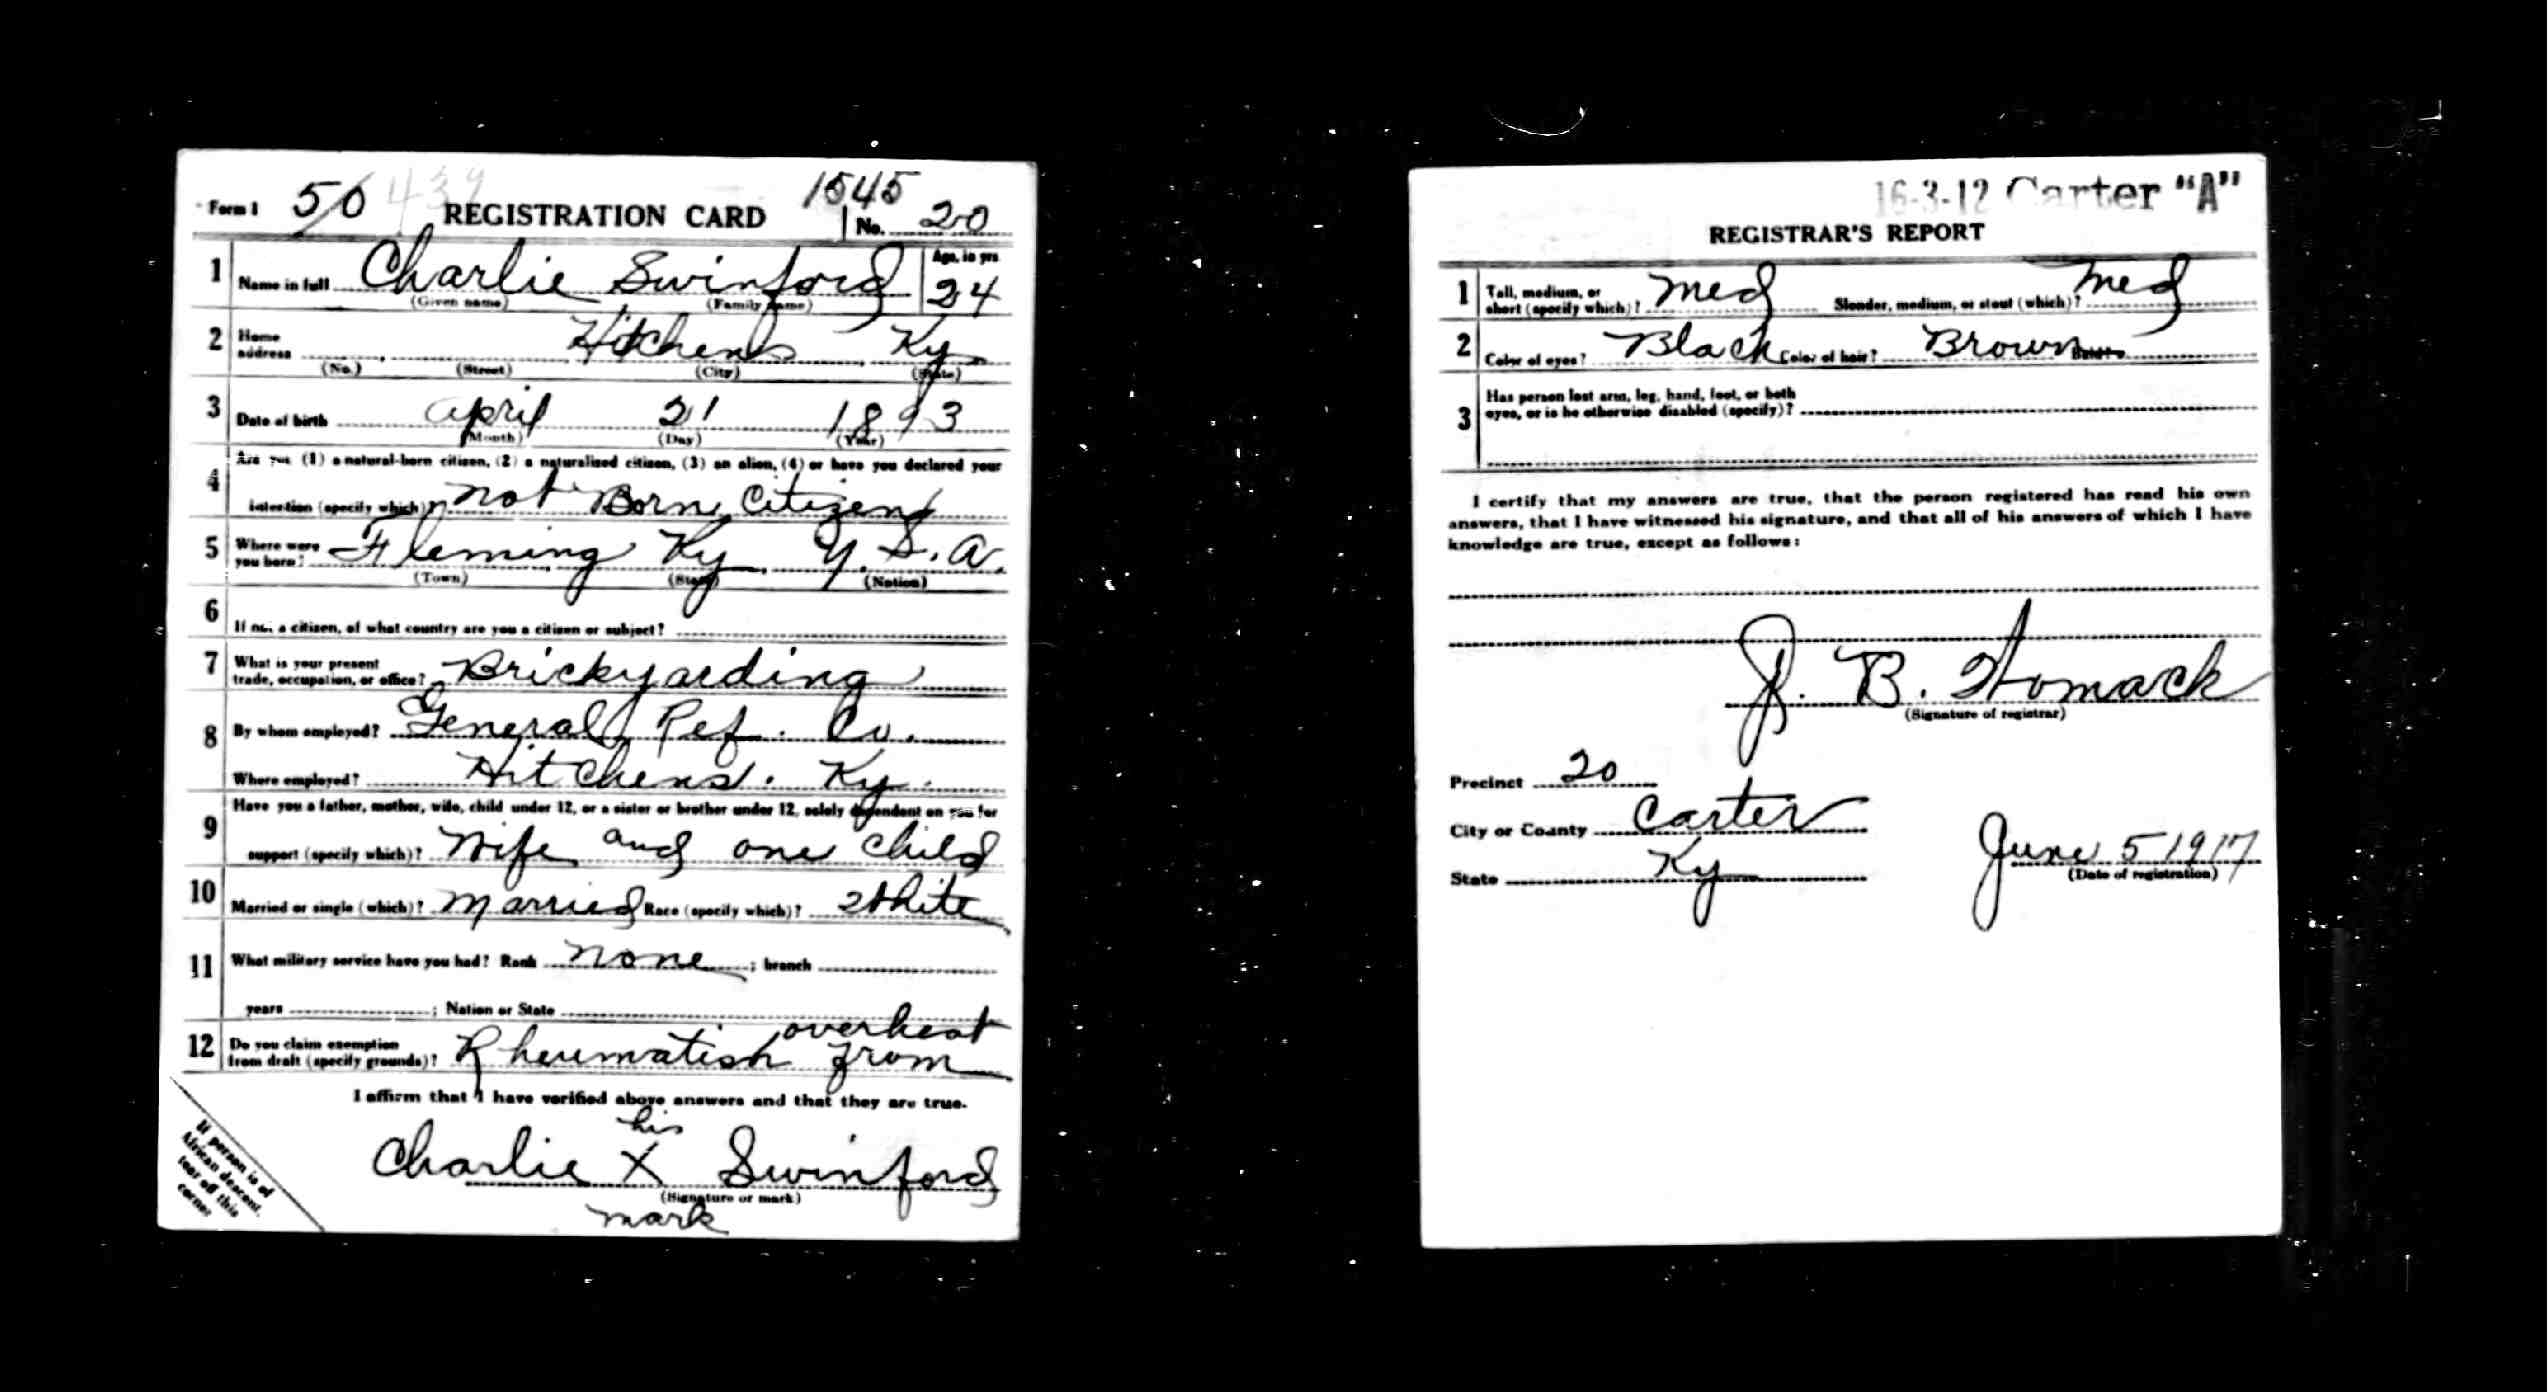 Form 1 50 439 REGISTRATION CARD 1545 No. 20
1 Name in full Charlie Swinford Age, in yrs 24
(Given name) (Family name)
2 Home address Hitchens Ky
(No.) (Street) (City) (State)
3 Date of birth April 21 1893
(Month) (Day) (Year)
4 Are you (1) a natural-born citizen, (2) a naturalized citizen, (3) an alien, (4) or have you declared your
intention (specify which)? nat Born Citizen
5 Where were you born? Fleming Ky U. S. A.
(Town) (State) (Nation)
6 If not a citizen, of what country are you a citizen or subject?
7 What is your present trade, occupation, or office? Brickyarding
8 By whom employed? General Ref. Co.
Where employed? Hitchens. Ky.
9 Have you a father, mother, wife, child under 12, or a sister or brother under 12, solely dependent on you for
support (specify which)? Wife and one child
10 Married or single (which)? Married Race (specify which)? White
11 What military service have you had? Rank none ; branch
years ; Nation or State
overheat
12 Do you claim exemption from draft (specify grounds)? Rheumatism from
I affirm that I have verified above answers and that they are true.
his
Charlie X Swinford
(Signature or mark)
mark
If person is of
African descent,
tear off this
corner
16-3-12 Carter "A"
REGISTRAR'S REPORT
1 Tall, medium, or short (specify which)? med Slender, medium, or stout (which)? med
2 Color of eyes? Black Color of hair? Brown Bald?
3 Has person lost arm, leg, hand, foot, or both
eyes, or is he otherwise disabled (specify)?
I certify that my answers are true, that the person registered has read his own
answers, that I have witnessed his signature, and that all of his answers of which I have
knowledge are true, except as follows:
J. B. Womack
(Signature of registrar)
Precinct 20
City or County Carter
State Ky
June 5 1917
(Date of registration)